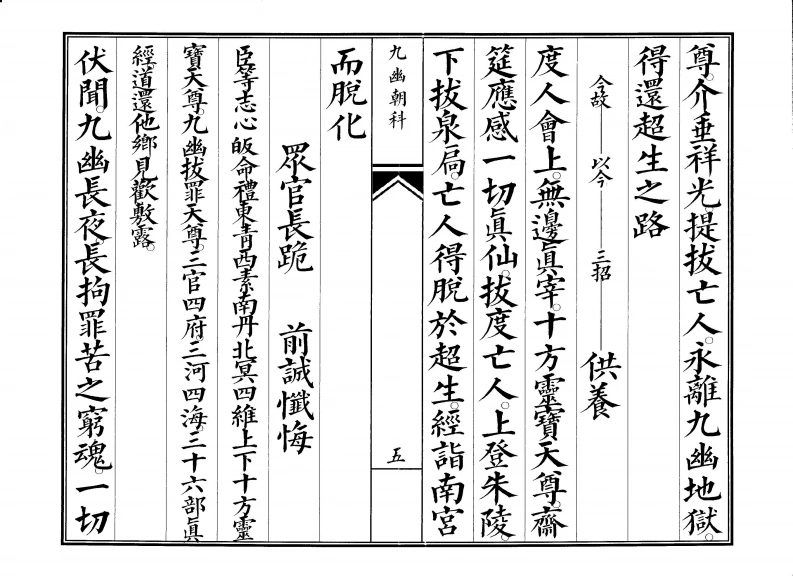 尊。介垂祥光。提拔亡人。永離九幽地獄。
得還超生之路
今故——以今——三招——供養
度人會上。無邊眞宰。十方靈寶天尊。齋
筵應感一切眞仙。拔度亡人。上登朱陵。
下拔泉扃。亡人得脫於超生。經詣南宮
九幽朝科 五
而脫化
眾官長跪 前誠懺悔
臣等志心皈命禮東青西素南丹北冥四維上下十方靈
寶天尊。九幽拔罪天尊。三官四府。三河四海。三十六部眞
經道還他鄉見歡敷露。
伏聞。九幽長夜。長拘罪苦之窮魂。一切